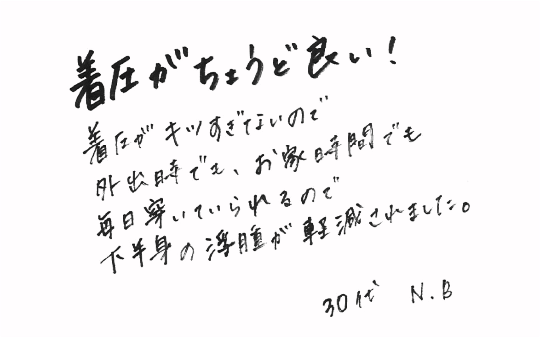 着圧がちょうど良い！
着圧がキツすぎないので
外出時でも、お家時間でも
毎日穿いていられるので
下半身の浮腫が軽減されました。
30代 N.B